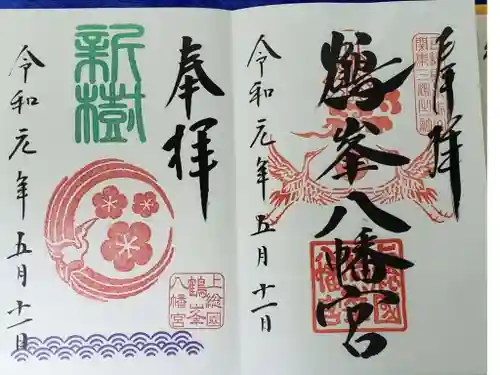 奉拝
鶴峯八幡宮
令和元年五月十一日
奉拝
新樹
上総國
鶴峯
八幡宮
令和元年五月十一日